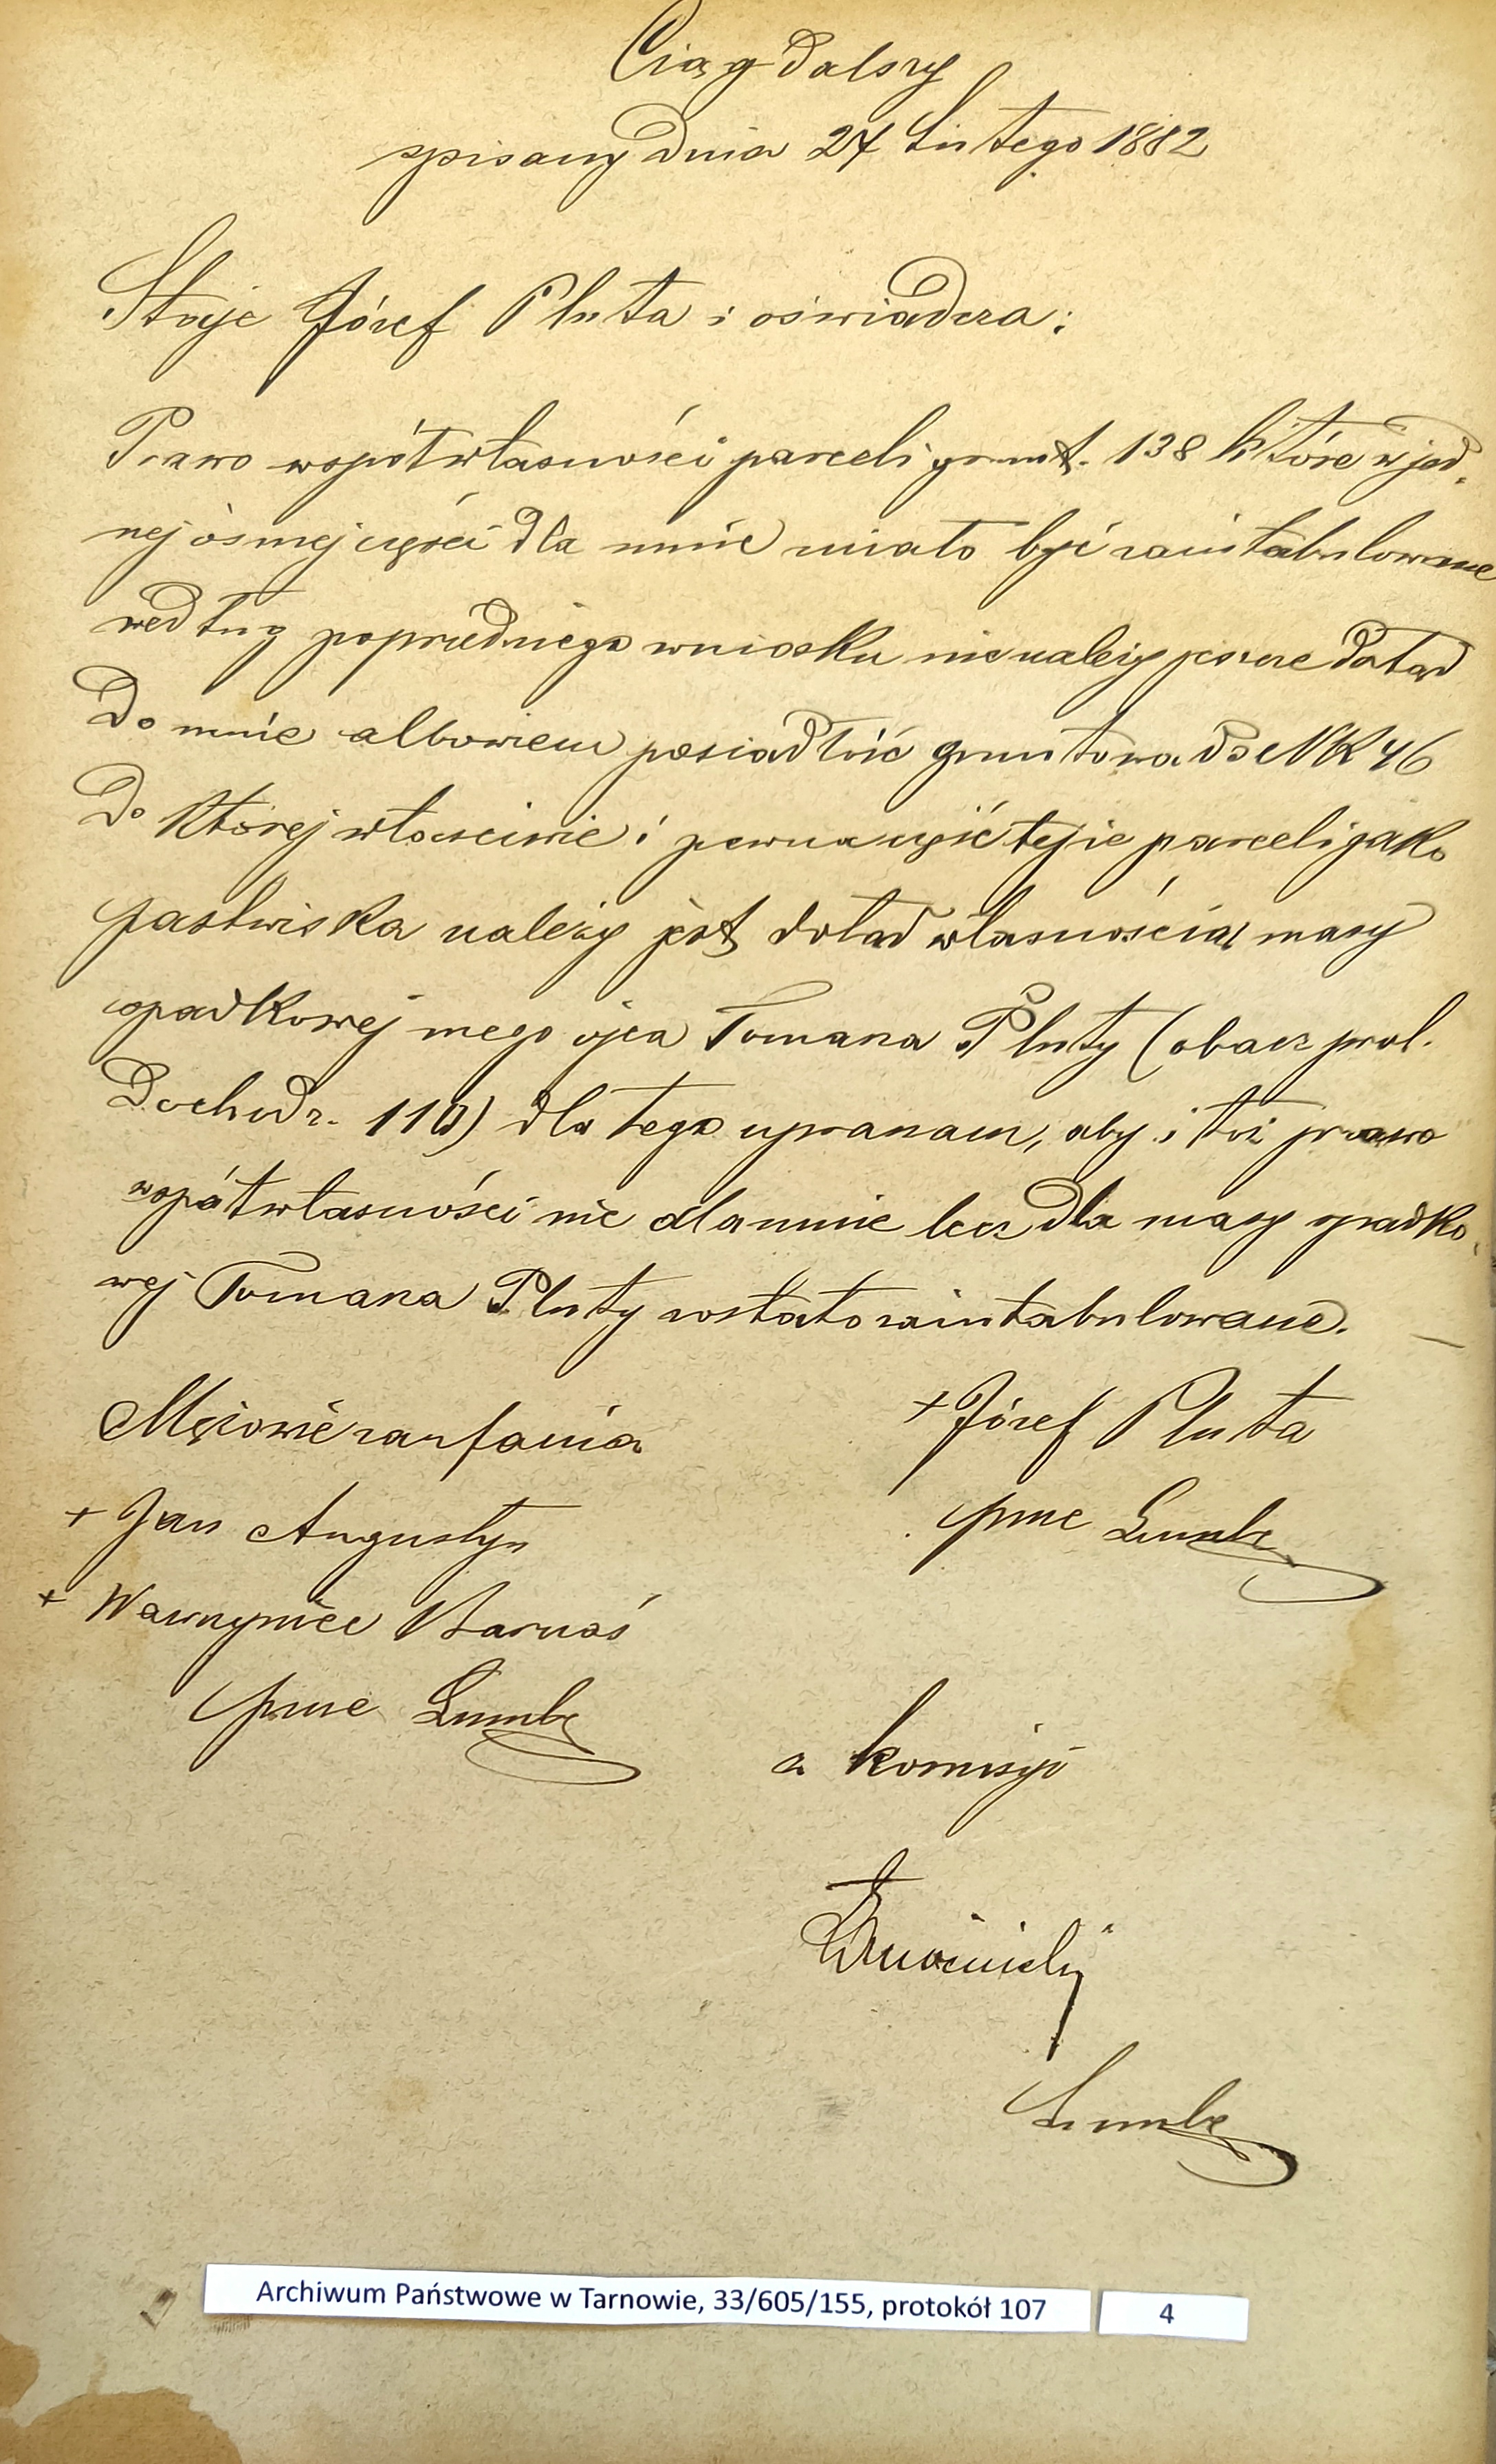 Ciąg dalszy
spisany dnia 27 Lutego 1882
Staje Józef Pluta i oświadcza:
Prawo współwłasności parceli grunt. 138 które w jed-
nej ósmej części dla mnie miało być zaintabulowane
według poprzedniego wniosku nie należy jeszcze dotąd
do mnie albowiem posiadłość gruntowa do NK 46
do której właściwie i pewna część tejże parceli jako
pastwiska należy jest dotąd własnością masy
spadkowej mego ojca Tomasza Pluty (obacz prot.
dochodz. 110) dla tego upraszam, aby i toż prawo
współwłasności nie dla mnie lecz dla masy spadko-
wej Tomasza Pluty zostało zaintabulowane.
Mężowie zaufania
+ Józef Pluta
+ Jan Augustyn
prze
+ Wawrzyniec Barnaś
prze
z komisyi
Archiwum Państwowe w Tarnowie, 33/605/155, protokół 107
4